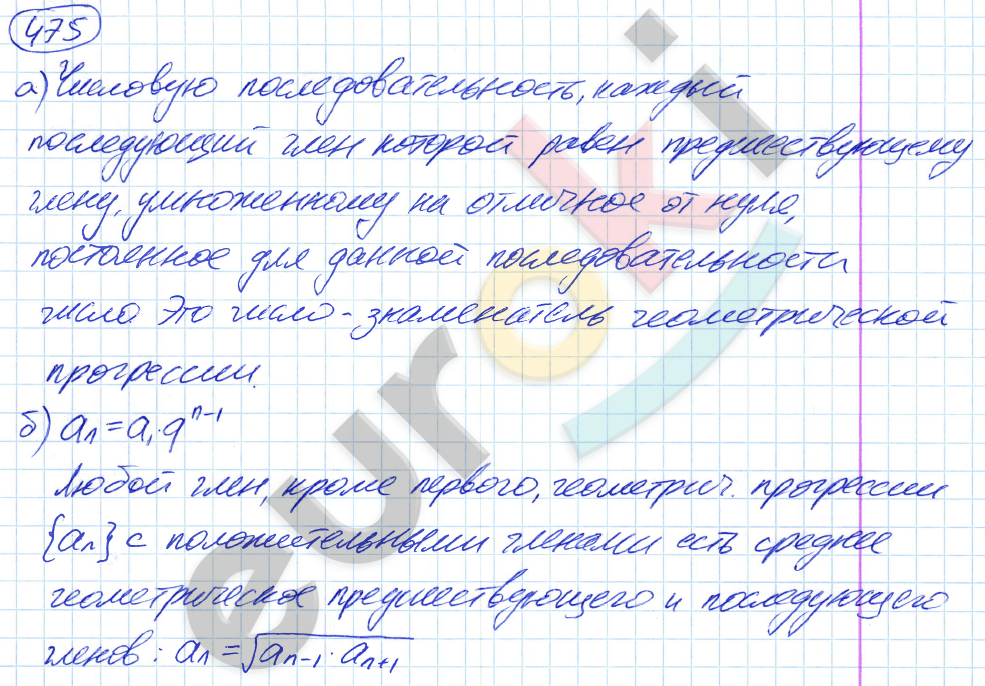 475
а) Числовую последовательность, каждый
последующий член которой равен предшествующему
члену, умноженному на отличное от нуля,
постоянное для данной последовательности
число Это число - знаменатель геометрической
прогрессии.
б) aₙ = a₁ · qⁿ⁻¹
Любой член, кроме первого, геометрич. прогрессии
{aₙ} с положительными членами есть среднее
геометрическое предшествующего и последующего
членов: aₙ = √(aₙ₋₁ · aₙ₊₁)
euroki